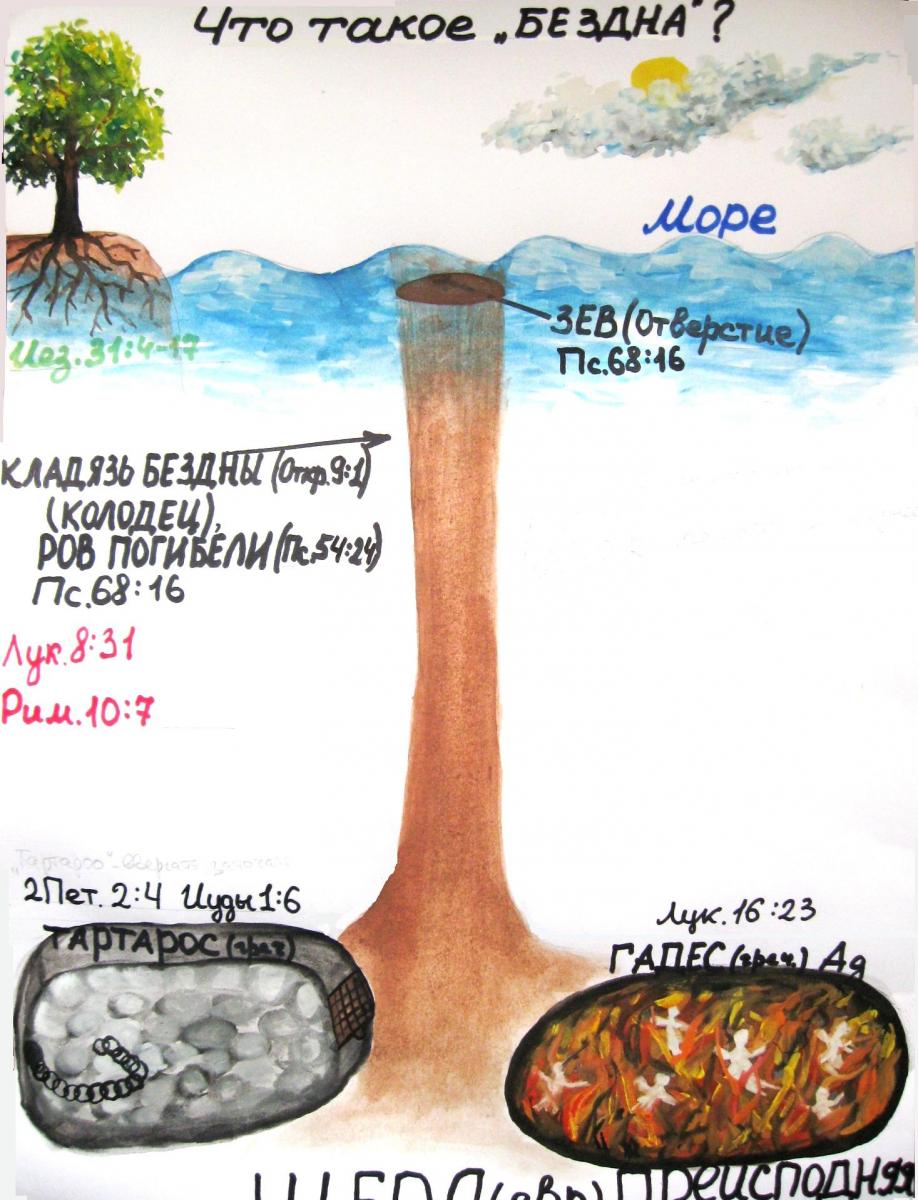 Что такое „БЕЗДНА"?
Море
ЗЕВ (Отверстие)
Пс.68:16
Иез.31:4-17
КЛАДЯЗЬ БЕЗДНЫ (Откр.9:1)
(КОЛОДЕЦ),
РОВ ПОГИБЕЛИ (Пс.54:24)
Пс.68:16
Лук.8:31
Рим.10:7
2Пет. 2:4 Иуды 1:6
ТАРТАРОС (греч)
Лук.16:23
ГАДЕС (греч.) Ад
ШЕОЛ (евр) ПРЕИСПОДНЯЯ